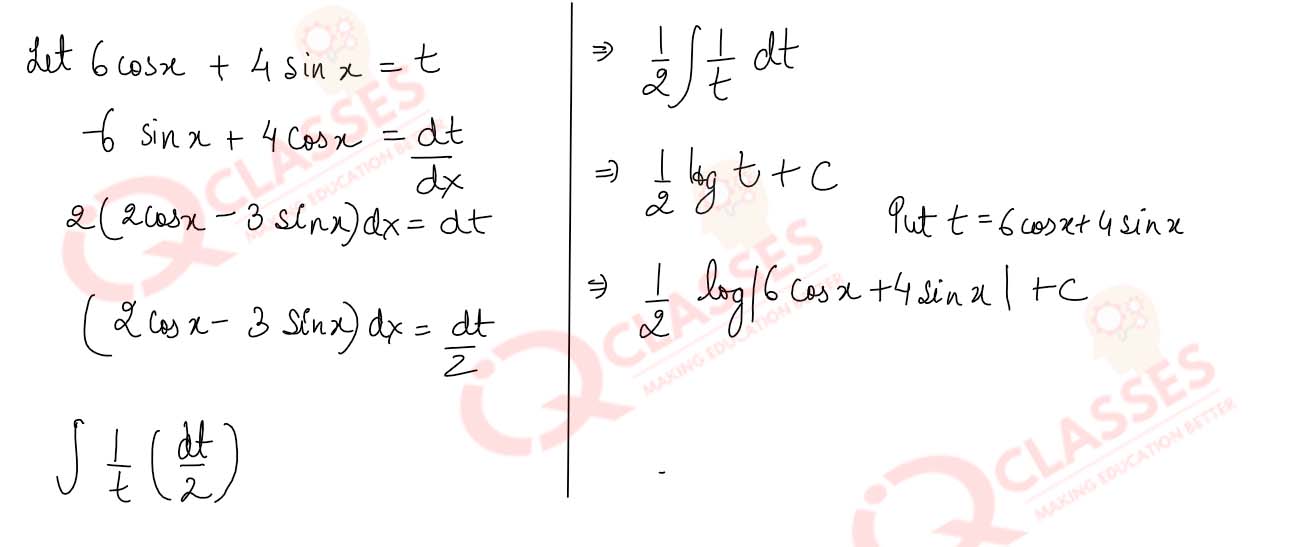 Let 6 cosx + 4 sin x = t
-6 sinx + 4 cosx = dt/dx
2(2cosx - 3 sinx)dx = dt
(2 cosx - 3 sinx) dx = dt/2
∫ 1/t (dt/2)
⇒ 1/2 ∫ 1/t dt
⇒ 1/2 log t + c
Put t = 6 cosx + 4 sinx
⇒ 1/2 log|6 cosx + 4 sin x| + c
iQ CLASSES
MAKING EDUCATION BETTER
iQ CLASSES
MAKING EDUCATION BETTER
iQ CLASSES
MAKING EDUCATION BETTER